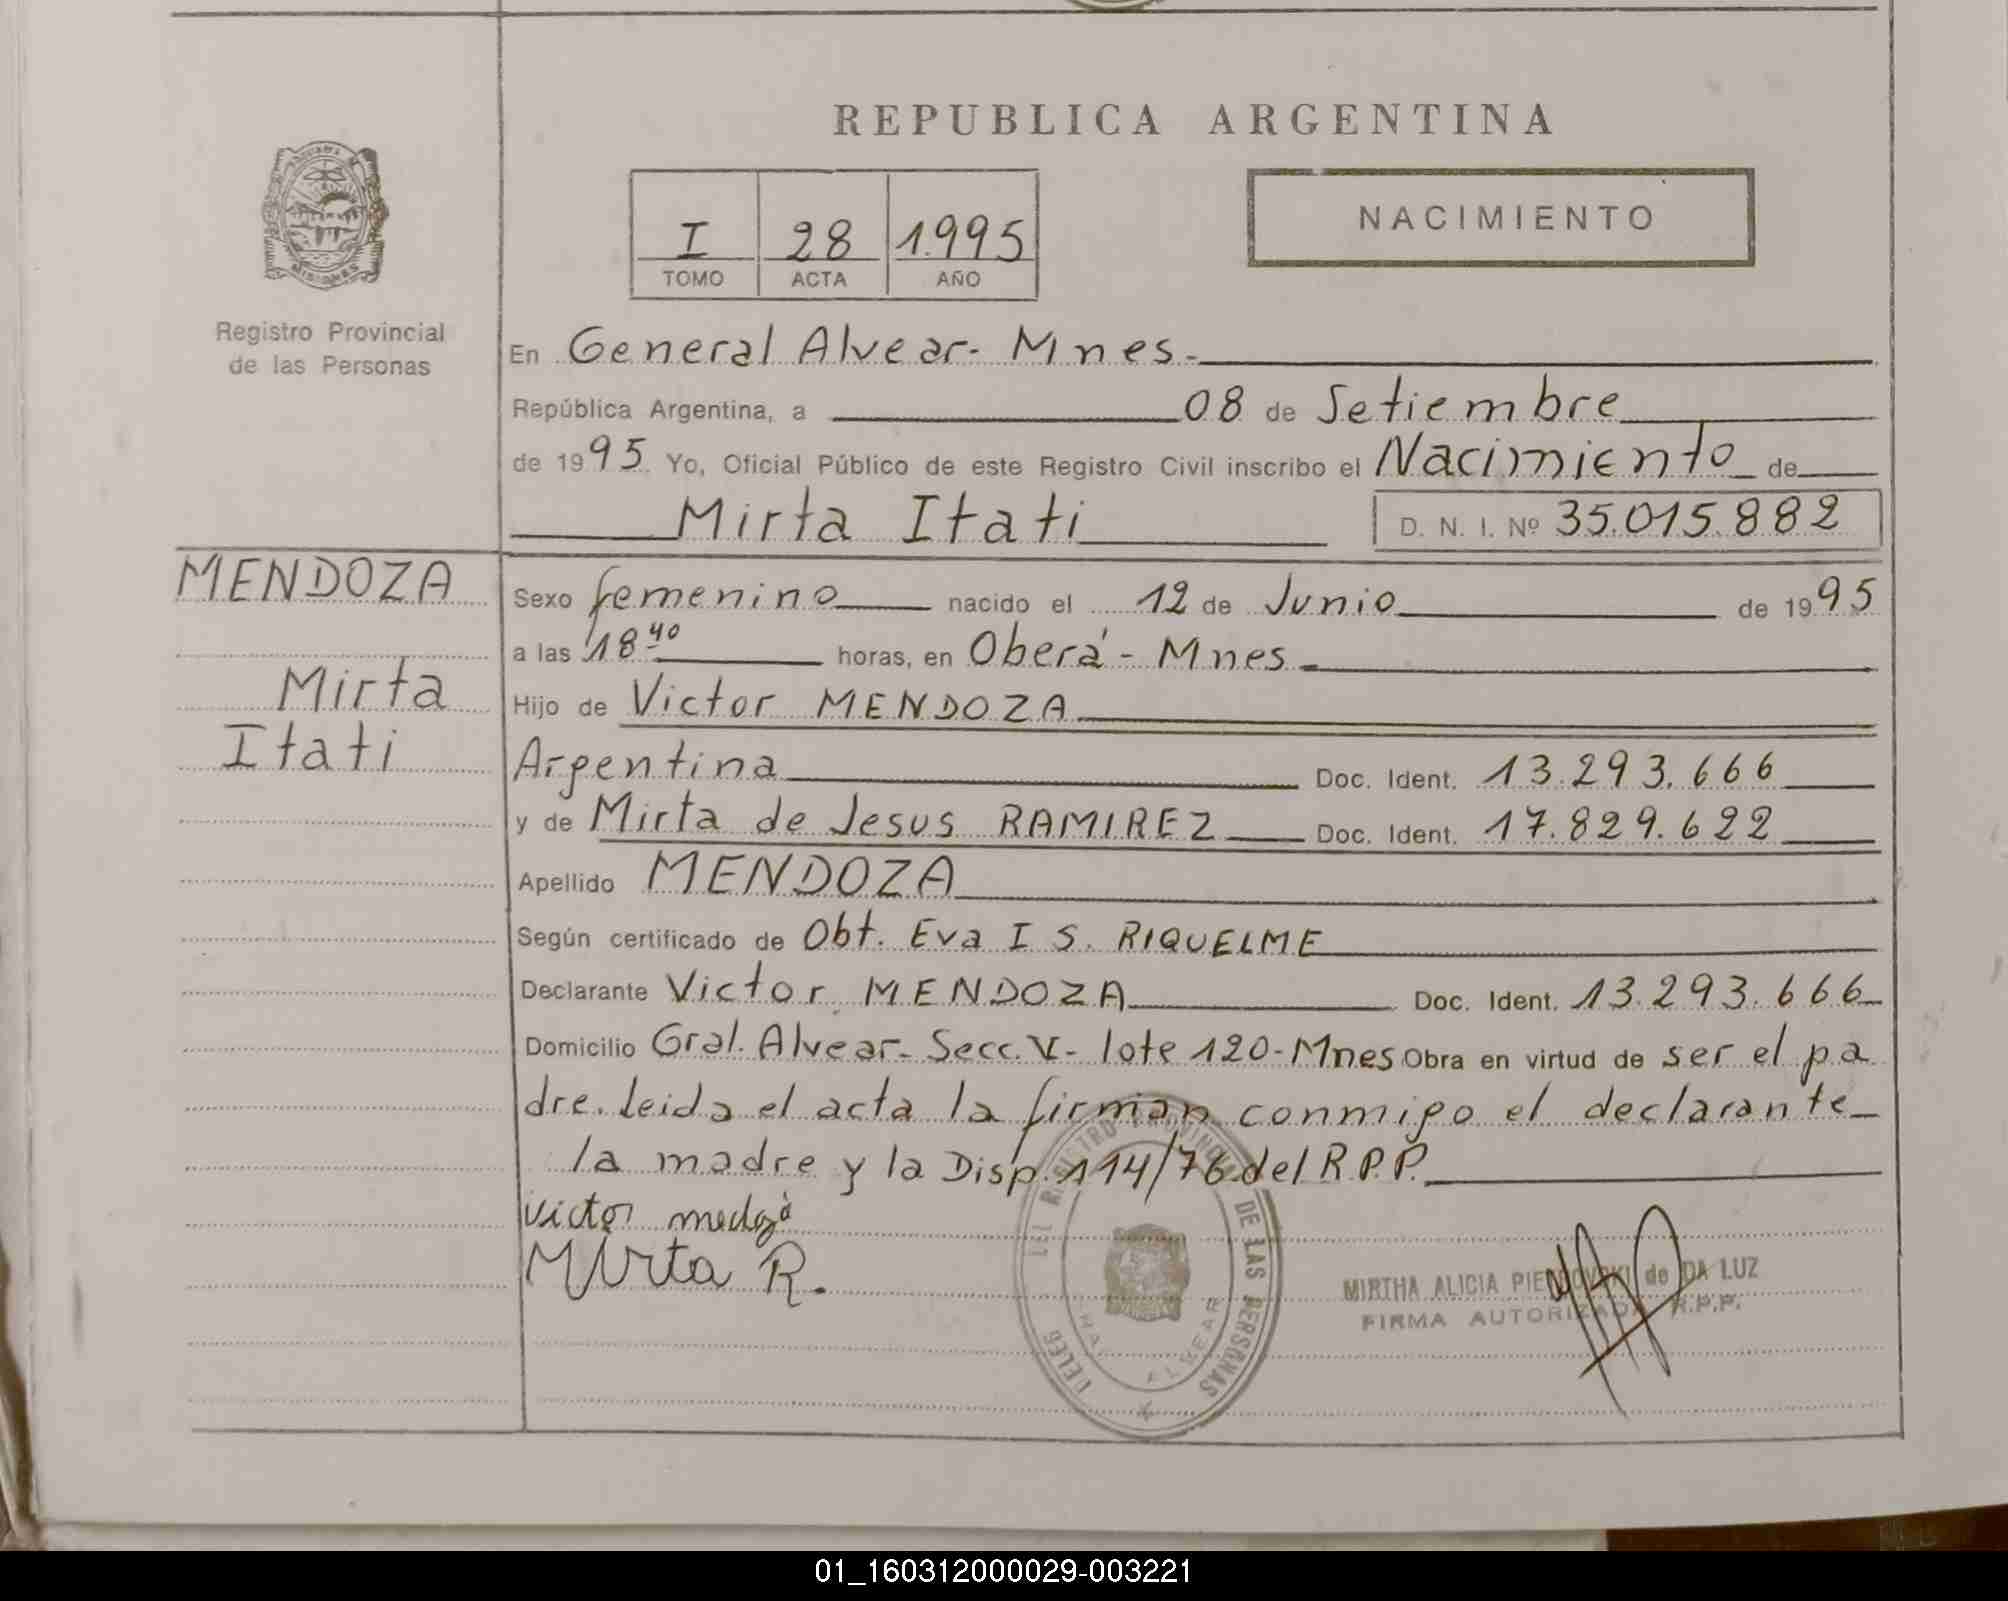 REPUBLICA ARGENTINA
NACIMIENTO
I 28 1.995
TOMO ACTA AÑO
MISIONES
Registro Provincial
de las Personas
En General Alvear- Mnes.
República Argentina, a 08 de Setiembre
de 1995. Yo, Oficial Público de este Registro Civil inscribo el Nacimiento de
Mirta Itati D. N. I. Nº 35.015.882
MENDOZA
Mirta
Itati
Sexo femenino nacido el 12 de Junio de 1995
a las 18 40 horas, en Oberá - Mnes
Hijo de Victor MENDOZA
Argentina Doc. Ident. 13.293.666
y de Mirta de Jesus RAMIREZ Doc. Ident. 17.829.622
Apellido MENDOZA
Según certificado de Obt. Eva I S. RIQUELME
Declarante Victor MENDOZA Doc. Ident. 13.293.666
Domicilio Gral. Alvear- Secc. V- lote 120-Mnes Obra en virtud de ser el pa
dre. leida el acta la firman conmigo el declarante
la madre y la Disp. 114/76 del R.P.P.
victor medoza
Mirta R.
DELEG DEL REGISTRO PROVINCIAL DE LAS PERSONAS
GRAL ALVEAR
MIRTHA ALICIA PIETROVSKI de DA LUZ
FIRMA AUTORIZADA R.P.P.
01_160312000029-003221